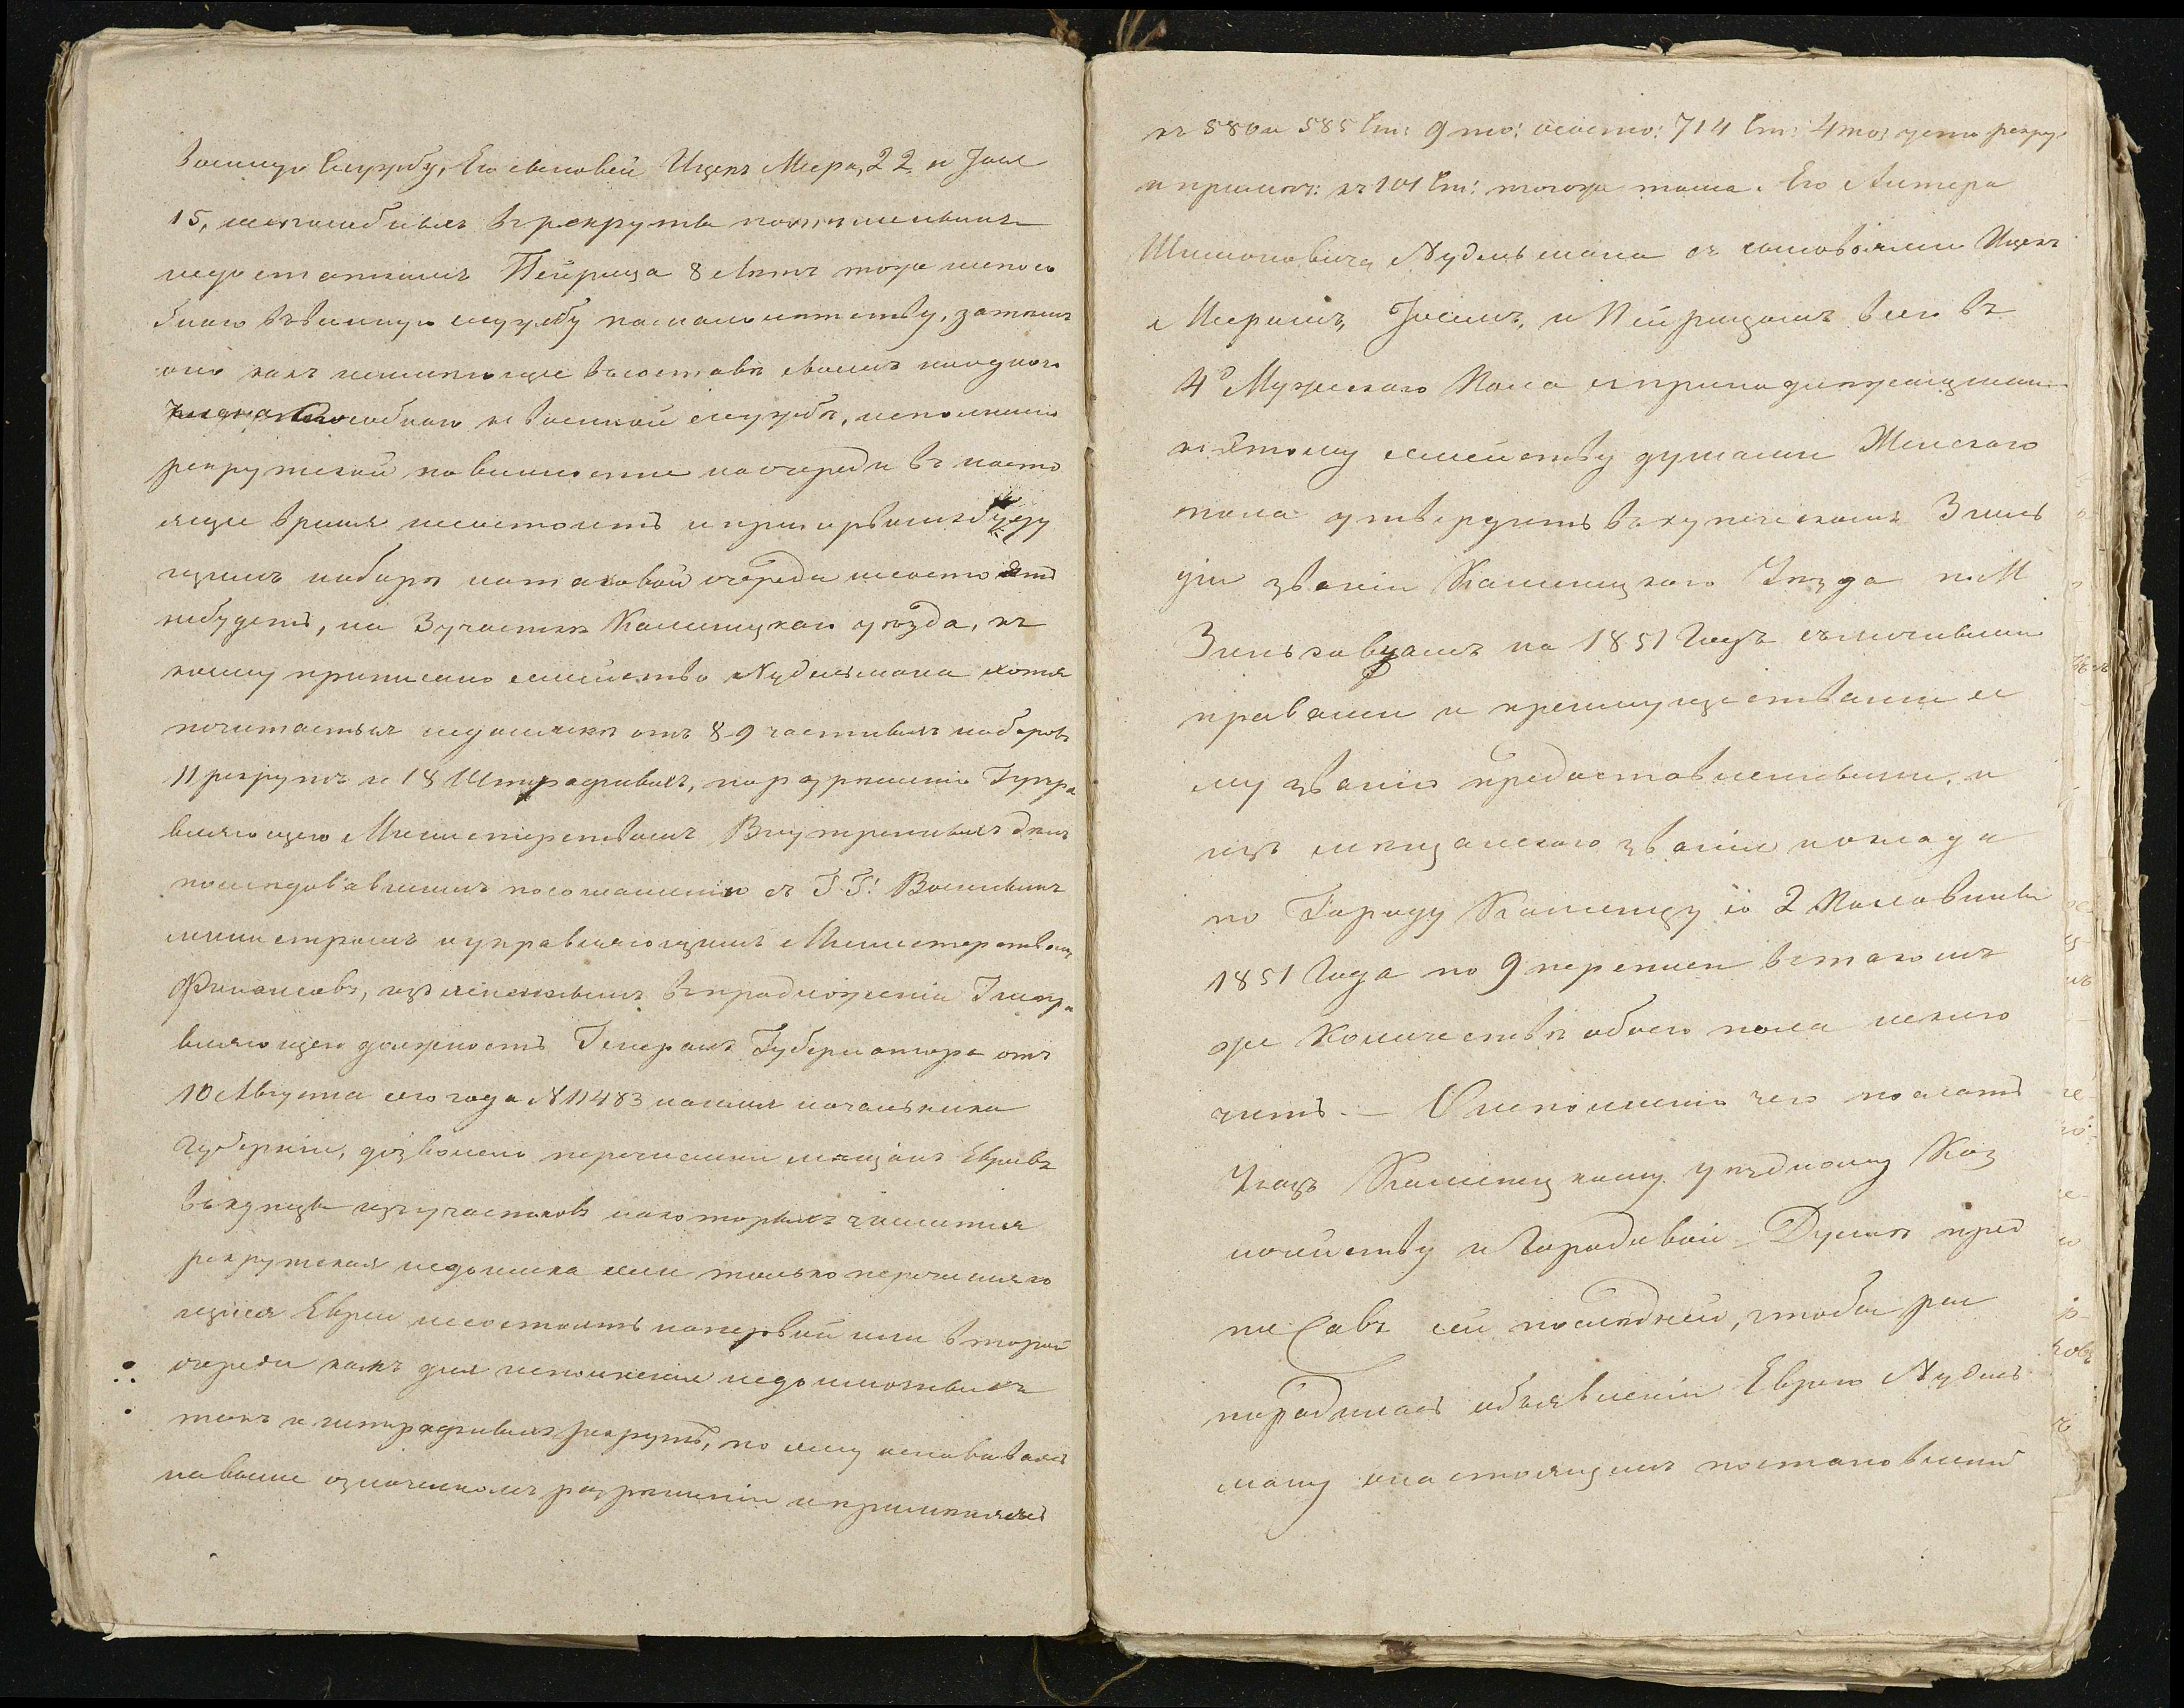 военную службу, Его сыновей Ицекъ Меера, 22 и Іосе
15, неспособныхъ въ рекруты по
недостаткамъ Пейрица 8 лѣтъ тоже неспосо
бнаго въ военную службу по малолѣтству, затѣмъ
оно какъ неимѣющее въ составѣ своемъ ниодного
способнаго къ военной службѣ, исполненію
рекрутской повинности на очереди въ насто
ящее время несостоитъ и при первомъ буду
щемъ наборѣ на таковой очереди несостоять
небудетъ, на 3 участкѣ Каменецкаго уѣзда, къ
коему приписано семейство Нудельмана хотя
почитается недоимки отъ 8 9 частныхъ наборовъ
11 рекрутъ и 18 Штрафныхъ, но разрѣшенію Г упра
вляющаго Министерствомъ Внутреннихъ дѣлъ
послѣдовавшимъ по соглашенію съ Г.Г. Военнымъ
министромъ и управляющимъ Министерствомъ
Финансовъ, изъясненнымъ въ предложеніи Г испра
вляющаго должность Генералъ Губернатора отъ
10 Августа сего года N 11483 начальника
Губерніи, дозволено перечисленіи мѣщанъ Евреевъ
въ купцы изъ участковъ на которыхъ числится
рекрутская недоимка если только перечисляю
щіеся Евреи несостоятъ на первой или второй
очереди какъ для исполненія недоимочныхъ
такъ и штрафныхъ рекрутъ, по сему основываясь
на выше означенномъ разрѣшеніи и примѣняясь
къ 580 и 585 Ст: 9 то: о состо: 714 Ст: 4 то: уста рекру:
и примѣч: къ 101 Ст: того же тома. Его Антера
Шимоновича Нудельмана съ сыновьями Ицекъ
Меромъ, Іосемъ, и Пейрицомъ всего въ
4о Мужескаго Пола и принадлежащими
къ этому семейству душами Женскаго
пола утвердить въ купеческомъ 3 Гиль
діи званіи Каменецкаго Уѣзда по М
Зиньковцамъ на 1851 Годъ съ
правами и преимуществами се
му званію предоставленными, и
изъ мѣщанскаго званія
по Городу Каменцу со 2 Половины
1851 Года по 9 переписи въ такомъ
же Количествѣ обоего пола исклю
чить. — О исполненіи чего послать
Указъ Каменецкому уѣздному Каз
начейству и Городовой Думѣ пред
писавъ сей послѣдней, чтобы рас
порядилась объявленіи Еврею Нудель
ману о настоящемъ постановленіи